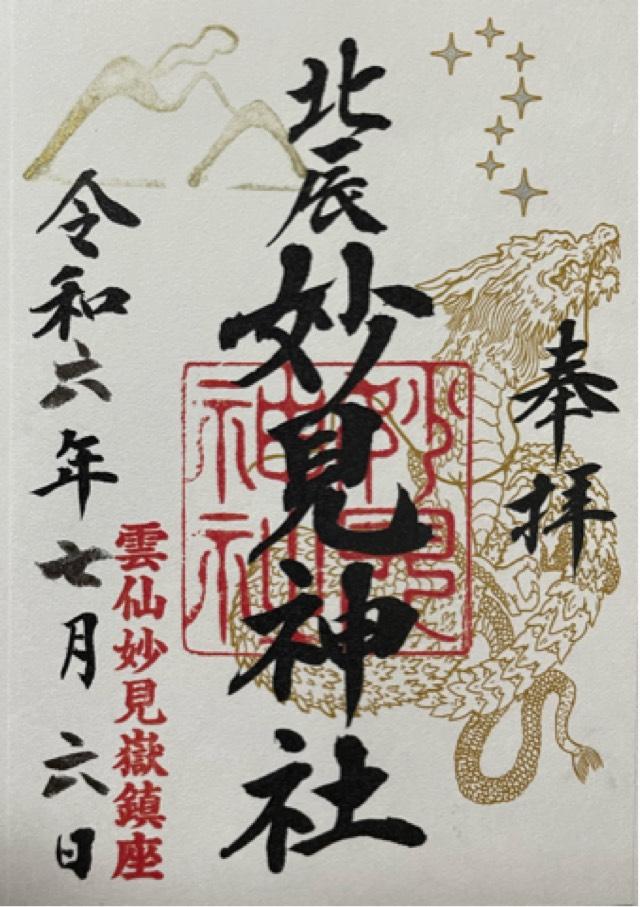 奉拝
北辰妙見神社
妙見神社
雲仙妙見嶽鎮座
令和六年七月六日